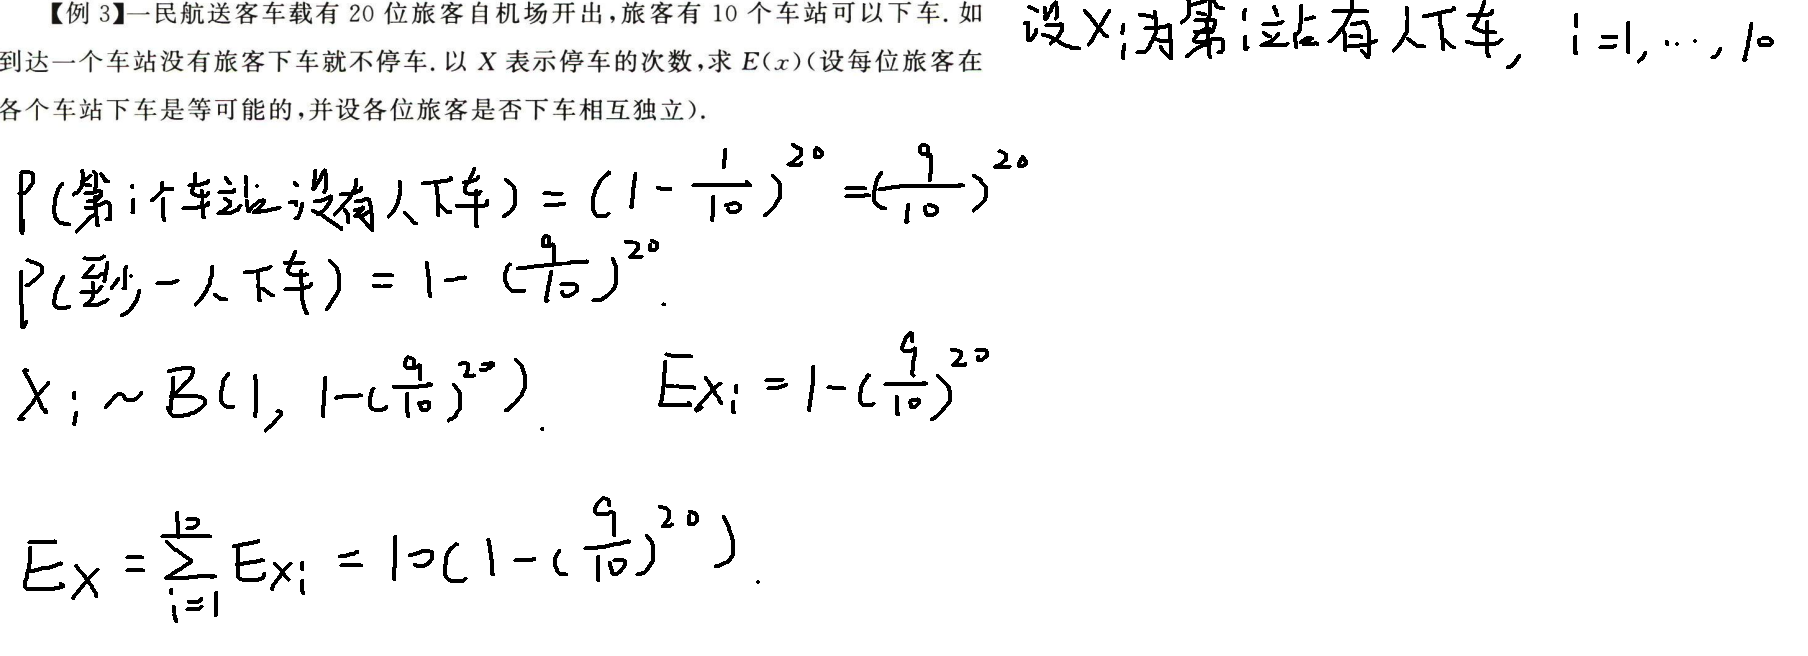 【例 3】一民航送客车载有 20 位旅客自机场开出,旅客有 10 个车站可以下车. 如
到达一个车站没有旅客下车就不停车. 以 X 表示停车的次数,求 E(x)(设每位旅客在
各个车站下车是等可能的,并设各位旅客是否下车相互独立).
设Xi为第i站有人下车, i=1,…,10
P(第i个车站没有人下车) = (1 - 1/10)^20 = (9/10)^20
P(至少一人下车) = 1 - (9/10)^20.
Xi ~ B(1, 1-(9/10)^20). EXi = 1-(9/10)^20
EX = ∑_{i=1}^{10} EXi = 10(1-(9/10)^20).